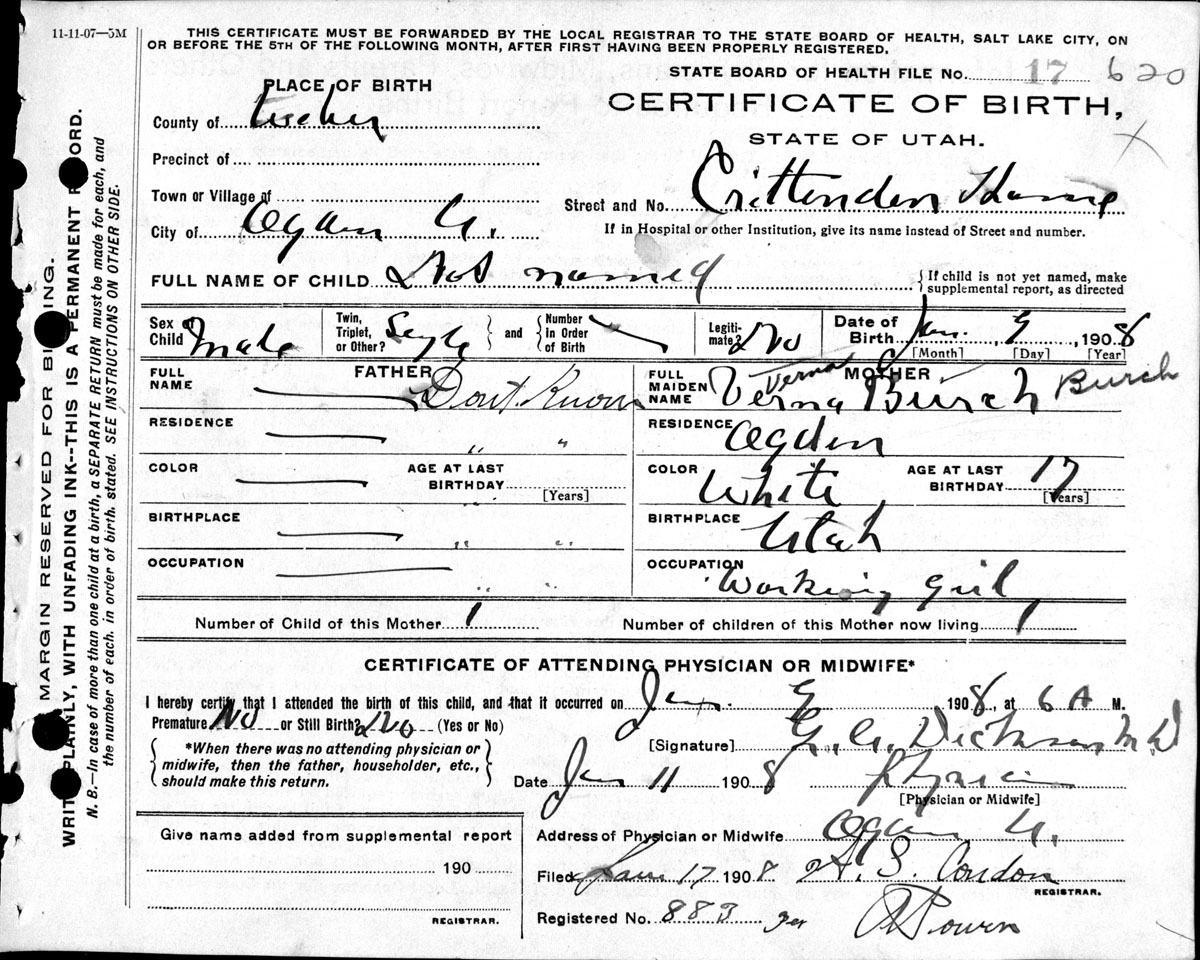 11-11-07—5M
THIS CERTIFICATE MUST BE FORWARDED BY THE LOCAL REGISTRAR TO THE STATE BOARD OF HEALTH, SALT LAKE CITY, ON
OR BEFORE THE 5TH OF THE FOLLOWING MONTH, AFTER FIRST HAVING BEEN PROPERLY REGISTERED.
STATE BOARD OF HEALTH FILE No. 17 620
PLACE OF BIRTH
CERTIFICATE OF BIRTH,
STATE OF UTAH.
County of
Precinct of
Town or Village of
Street and No. Crittenden Home
City of Ogden U.
If in Hospital or other Institution, give its name instead of Street and number.
FULL NAME OF CHILD Not named
If child is not yet named, make supplemental report, as directed
Sex of Child Male
Twin, Triplet, or Other? Single and Number in Order of Birth
Legitimate? No
Date of Birth Jan. 9, 1908
[Month] [Day] [Year]
FATHER
FULL NAME Dont Know
RESIDENCE " "
COLOR AGE AT LAST BIRTHDAY "
[Years]
BIRTHPLACE " "
OCCUPATION " "
MOTHER
FULL MAIDEN NAME Verna Burch Verna Burch
RESIDENCE Ogden
COLOR White AGE AT LAST BIRTHDAY 17
[Years]
BIRTHPLACE Utah
OCCUPATION Working girl
Number of Child of this Mother 1 Number of children of this Mother now living 1
CERTIFICATE OF ATTENDING PHYSICIAN OR MIDWIFE*
I hereby certify that I attended the birth of this child, and that it occurred on Jan. 9 1908, at 6 A M.
Premature No or Still Birth? No (Yes or No)
*When there was no attending physician or midwife, then the father, householder, etc., should make this return.
[Signature] Dickson M.D
Date Jan 11 1908 Physician
[Physician or Midwife]
Address of Physician or Midwife Ogden U.
Give name added from supplemental report
190
REGISTRAR.
Filed Jan 17, 1908 H. S. Condon
REGISTRAR.
Registered No. 883 per
MARGIN RESERVED FOR BINDING.
WRITE PLAINLY, WITH UNFADING INK--THIS IS A PERMANENT RECORD.
N. B.—In case of more than one child at a birth, a SEPARATE RETURN must be made for each, and
the number of each, in order of birth, stated. SEE INSTRUCTIONS ON OTHER SIDE.